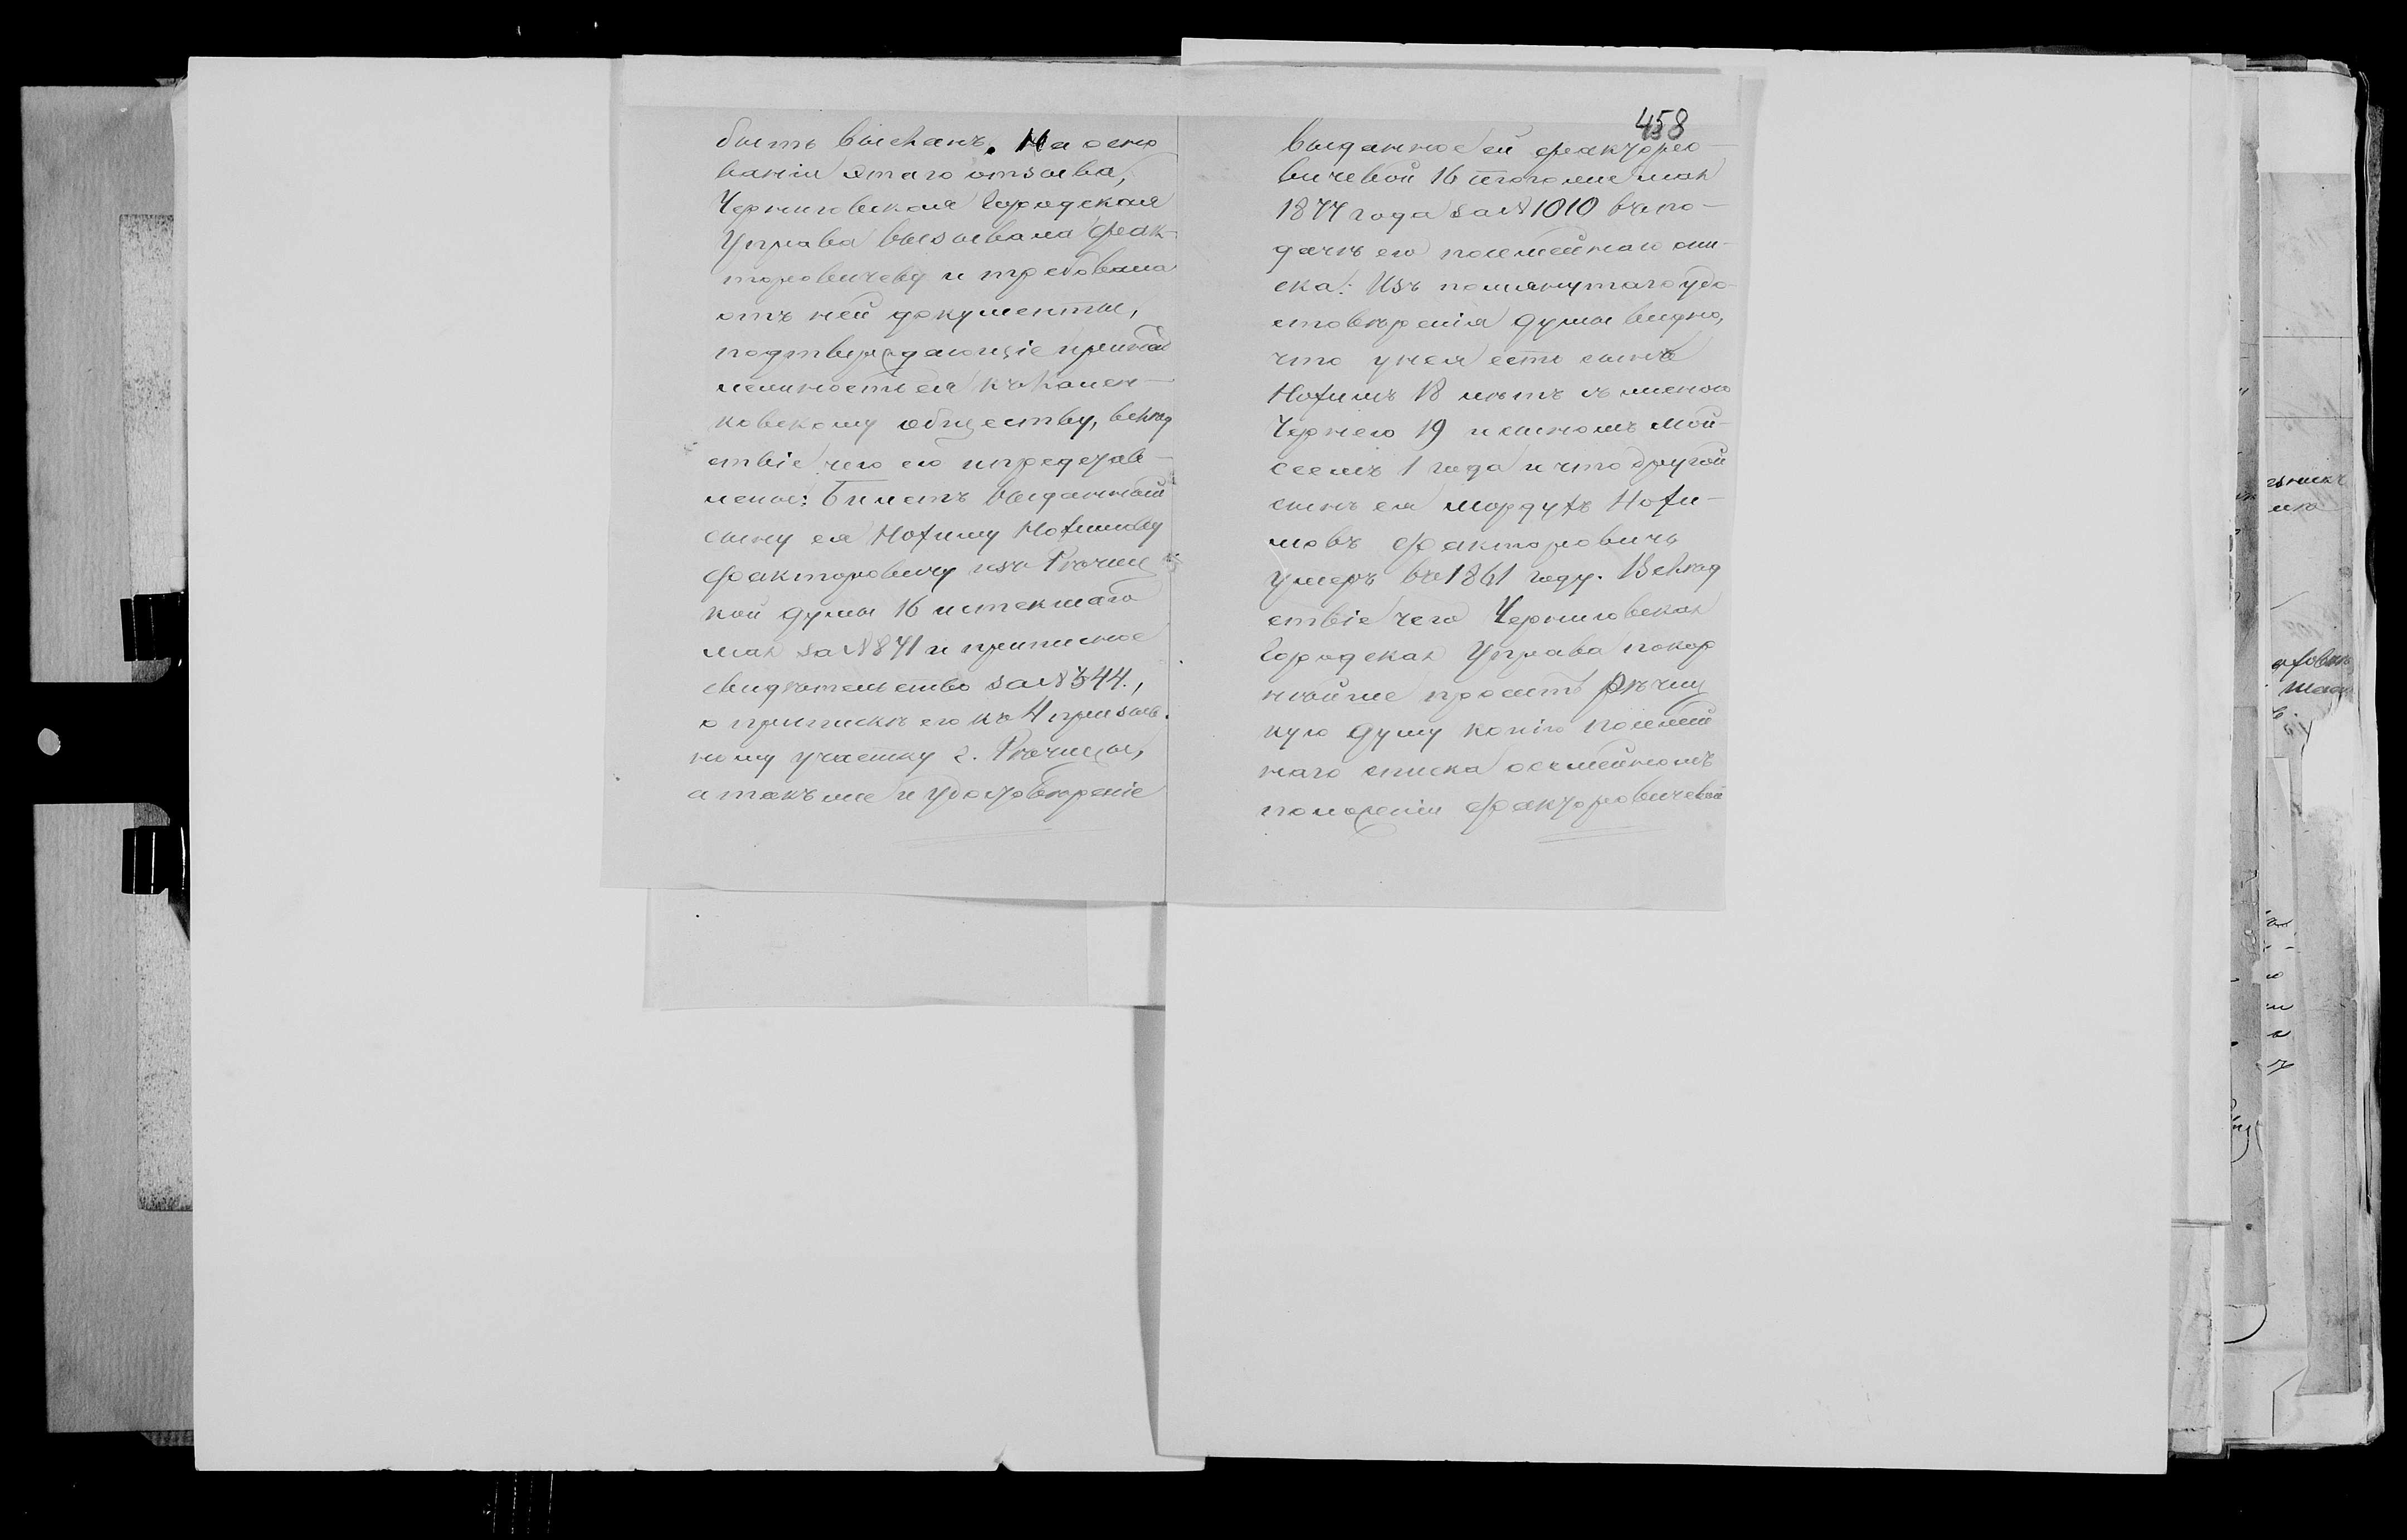 быть высланъ. На осно
ваніи этаго отзыва,
Черниговская Городская
Управа вызывала Фак-
торовичеву и требовала
отъ ней документы,
подтверждающіе принад
лежность ея къ
обществу, вслѣд
ствіе чего ею представ-
лены: Билетъ выданный
сыну ея Нохиму Нохимову
Факторовичу изъ Рѣчиц
кой думы 16 истекшаго
мая за № 871 и приписное
свидѣтельство за № 344.,
о припискѣ его къ 4 призыв.
ному участку г. Рѣчицы,
а такъ же и удостовѣреніе
458
выданное ей Факторо-
вичевой 16 того же мая
1877 года за № 1010 о
дачѣ ею посемейнаго спи-
ска. Изъ помянутаго удо-
стовѣренія думы видно,
что у нея есть сынъ
Нохимъ 18 лѣтъ съ женою
Чернею 19 и сыномъ Мой-
сеемъ 1 года и что другой
сынъ ея Мордухъ Нохи-
мовъ Факторовичъ
умеръ въ 1861 году. Вслѣд
ствіе чего Черниговская
Городская Управа покор
нѣйше проситъ Рѣчиц
кую Думу копію посемей
наго списка о семейномъ
положеніи Факторовичевой